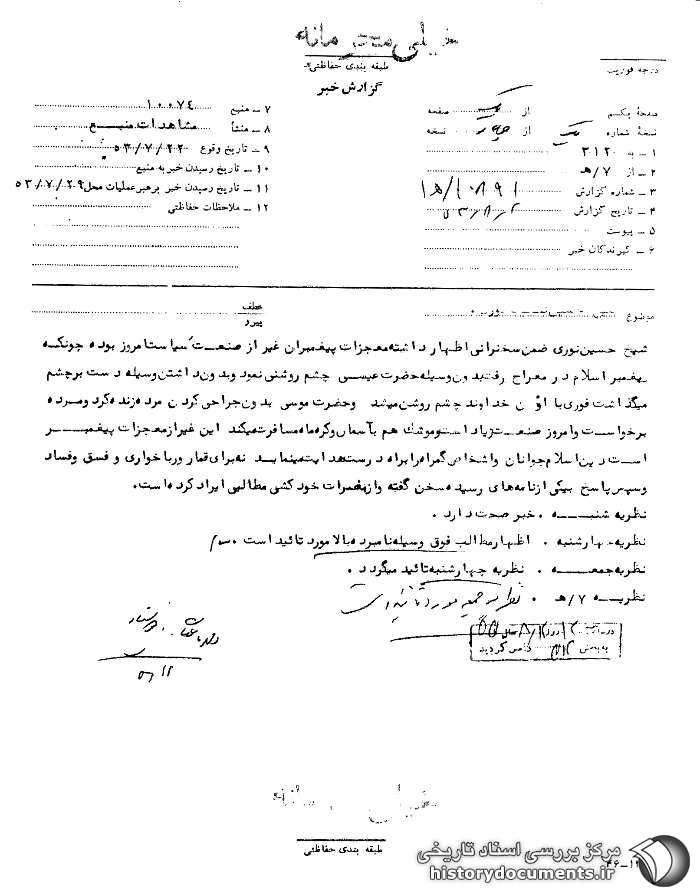 خیلی محرمانه
طبقه بندی حفاظتی
درجه فوریت
گزارش خبر
صفحهٔ یکم از یک صفحه
نسخهٔ شماره یک از نسخه
۱ ـ به ۳۱۲۰
۲ ـ از ۷/هـ
۳ ـ شماره گزارش
۴ ـ تاریخ گزارش
۵ ـ پیوست
۶ ـ گیرندگان خبر
۷ ـ منبع ۱۰۰۷۴
۸ ـ منشأ مشاهدات منبع
۹ ـ تاریخ وقوع ۵۳/۷/۲۲
۱۰ ـ تاریخ رسیدن خبر به منبع
۱۱ ـ تاریخ رسیدن خبر برهبر عملیات محل ۵۳/۷/۲۹
۱۲ ـ ملاحظات حفاظتی
موضوع
عطف
پیرو
شیخ حسین نوری ضمن سخنرانی اظهار داشته معجزات پیغمبران غیر از صنعت و سیاست امروز بوده چونکه
پیغمبر اسلام در معراج رفته بدون وسیله حضرت عیسی چشم روشنی نمود و بدون داشتن وسیله دست بر چشم
میگذاشت فوری با اذن خداوند چشم روشن میشد و حضرت موسی بدون جراحی کردن مرده زنده کرد و مرده
برخواست و امروز صنعت زیاد است و موشک هم بآسمان و کره ماه مسافرت میکند این غیر از معجزات پیغمبر
است دین اسلام جوانان و اشخاص گمراه را براه درست هدایت مینماید نه برای قمار و رباخواری و فسق و فساد
و سپس پاسخ بیکی از نامه های رسیده سخن گفته و از مضرات خودکشی مطالبی ایراد کرده است.
نظریه شنبه . خبر صحت دارد .
نظریه چهارشنبه . اظهار مطالب فوق وسیله نامبرده بالا مورد تائید است .
نظریه جمعه . نظریه چهارشنبه تائید میگردد .
نظریه ۷/هـ . نظریه جمعه مورد تائید است
به بخش ۳۱۲
طبقه بندی حفاظتی
۱۲-۴۶
مرکز بررسی اسناد تاریخی
historydocuments.ir